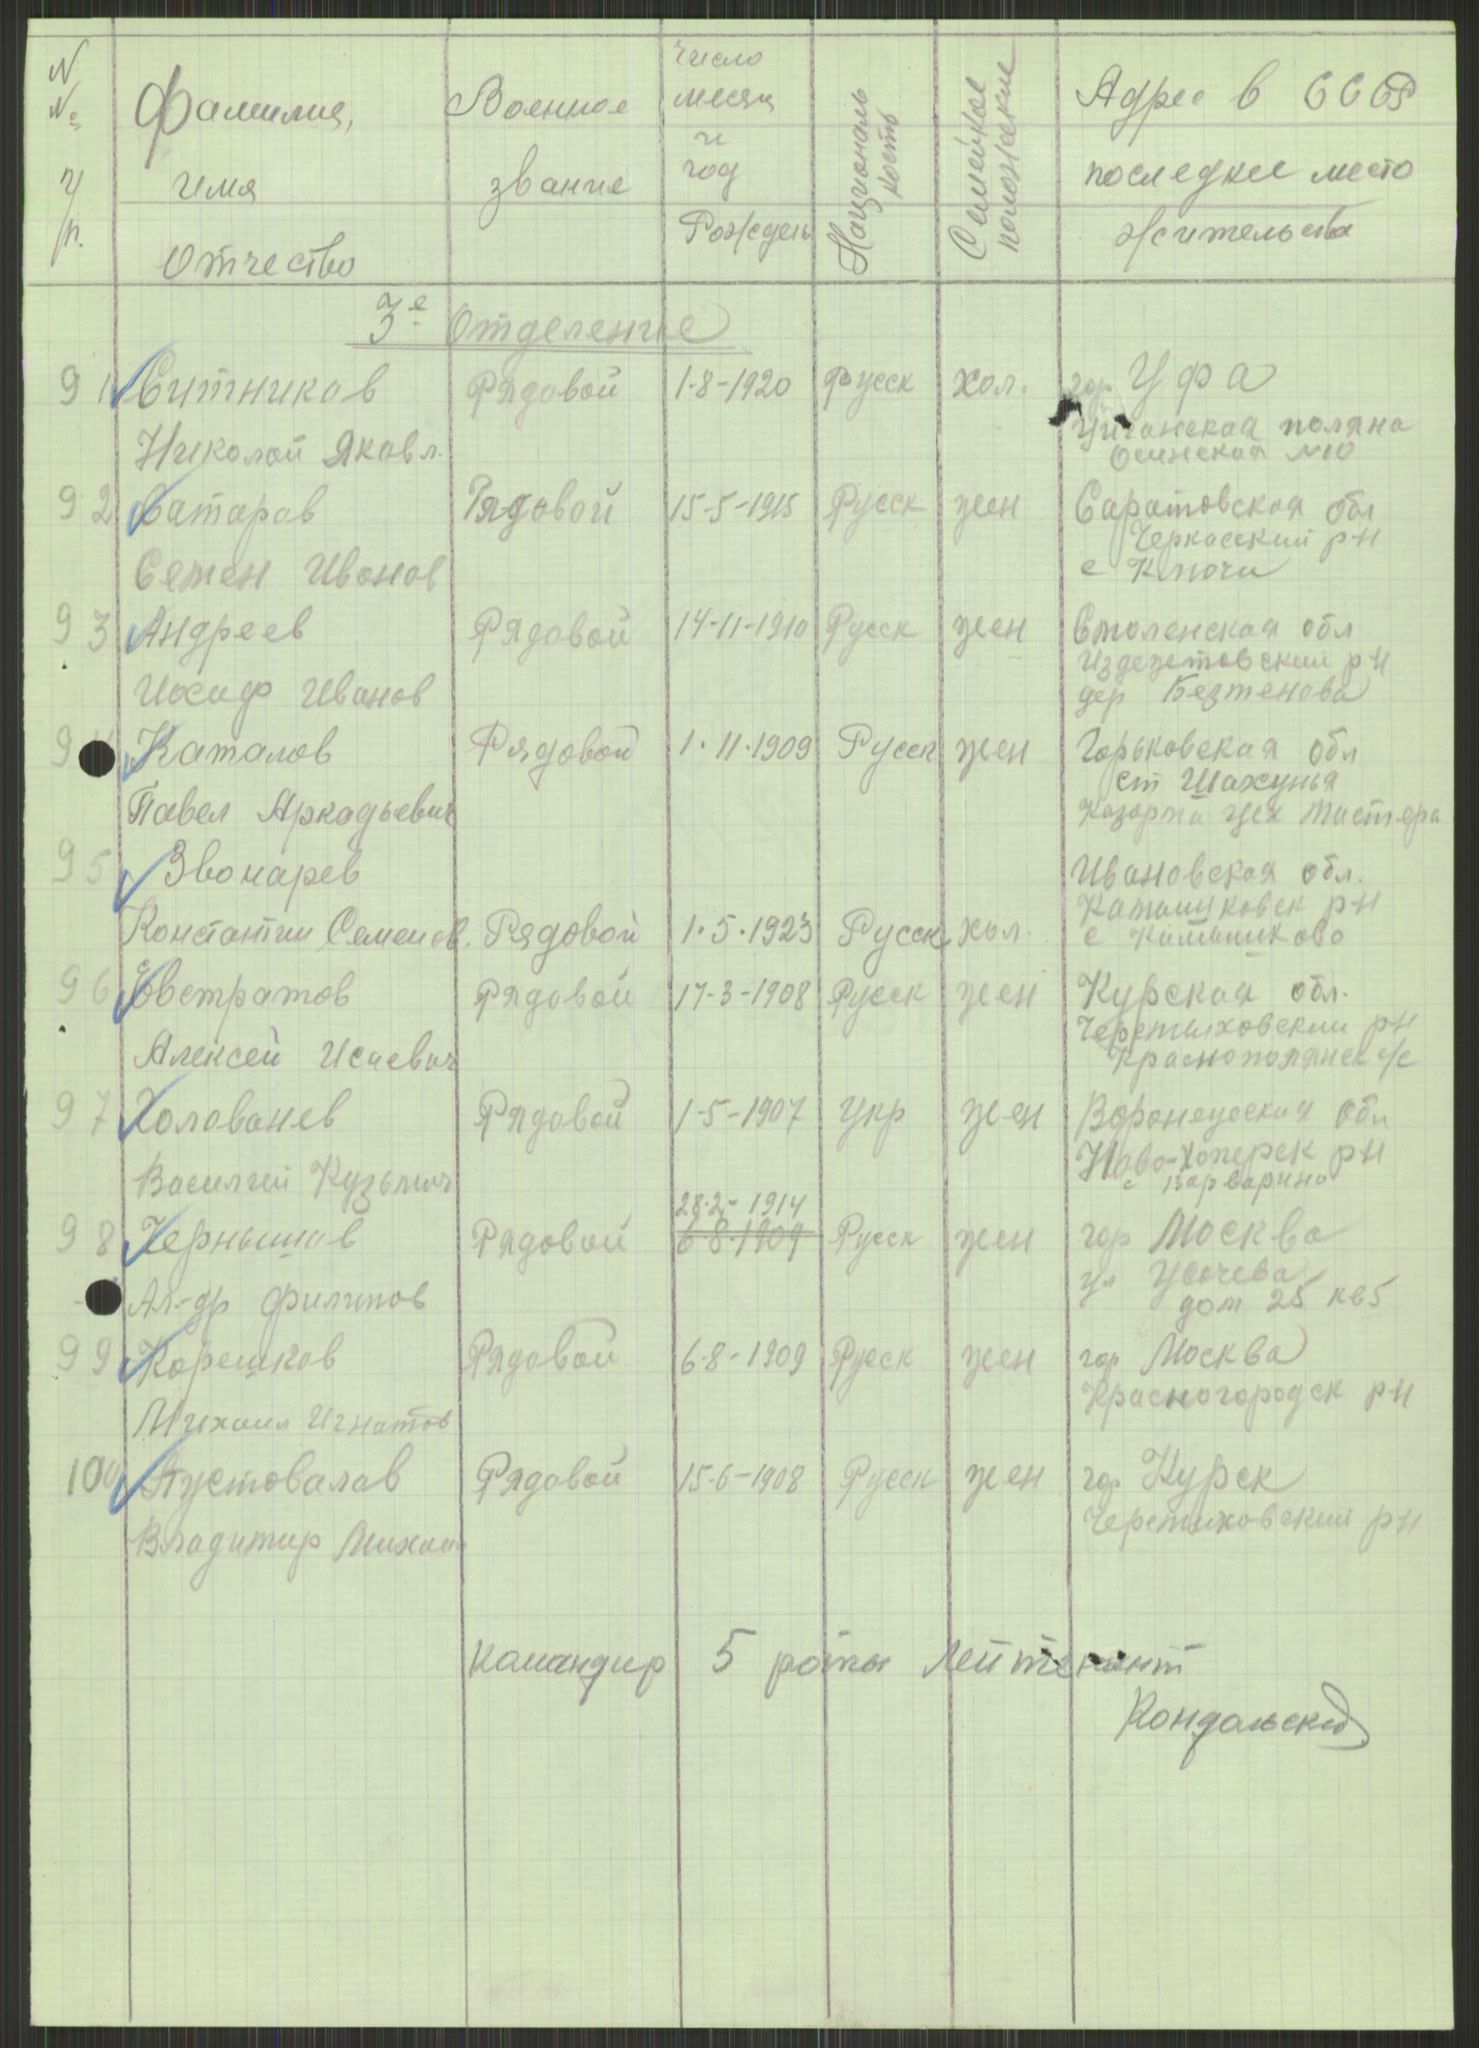 N Фамилия, Военное число Националь Семейное Адрес в СССР
№ месяц ность положение
и
п/п. имя звание год последнее место
Отчество Рожден жительства
3е Отделение
91 Ситников Рядовой 1-8-1920 Русск хол. гор Уфа
Николай Яковл. Цыганская поляна
Осинская №10
92 Сатаров Рядовой 15-5-1915 Русск жен Саратовская обл
Черкасский р-н
Семен Иванов с Ключи
93 Андреев Рядовой 14-11-1910 Русск жен Смоленская обл
Издешковский р-н
Иосиф Иванов дер
9 Каталов Рядовой 1.11.1909 Русск жен Горьковская обл
ст Шахунья
Павел Аркадьевич Казарма цех Мастера
95 Звонарев Ивановская обл.
Камешковск р-н
Константин Семенов. Рядовой 1.5.1923 Русск хол. с Камешково
96 Евстратов Рядовой 17-3-1908 Русск жен Курская обл.
р-н
Алексей Исаевич Краснополянск с/с
97 Холованев Рядовой 1-5-1907 Укр жен Воронежская обл
Ново-Хоперск р-н
Василий Кузьмич с Варварино
28-2-1914
98 Чернышов Рядовой 6-8-1909 Русск жен гор Москва
ул Усачева
Ал-др Филипов дом 25 кв5
99 Корешков Рядовой 6-8-1909 Русск жен гор Москва
Красногородск р-н
Михаил Игнатов
100 Пустовалов Рядовой 15-6-1908 Русск жен гор Курск
р-н
Владимир Михаил
Командир 5 роты Лейтенант
Кондольский